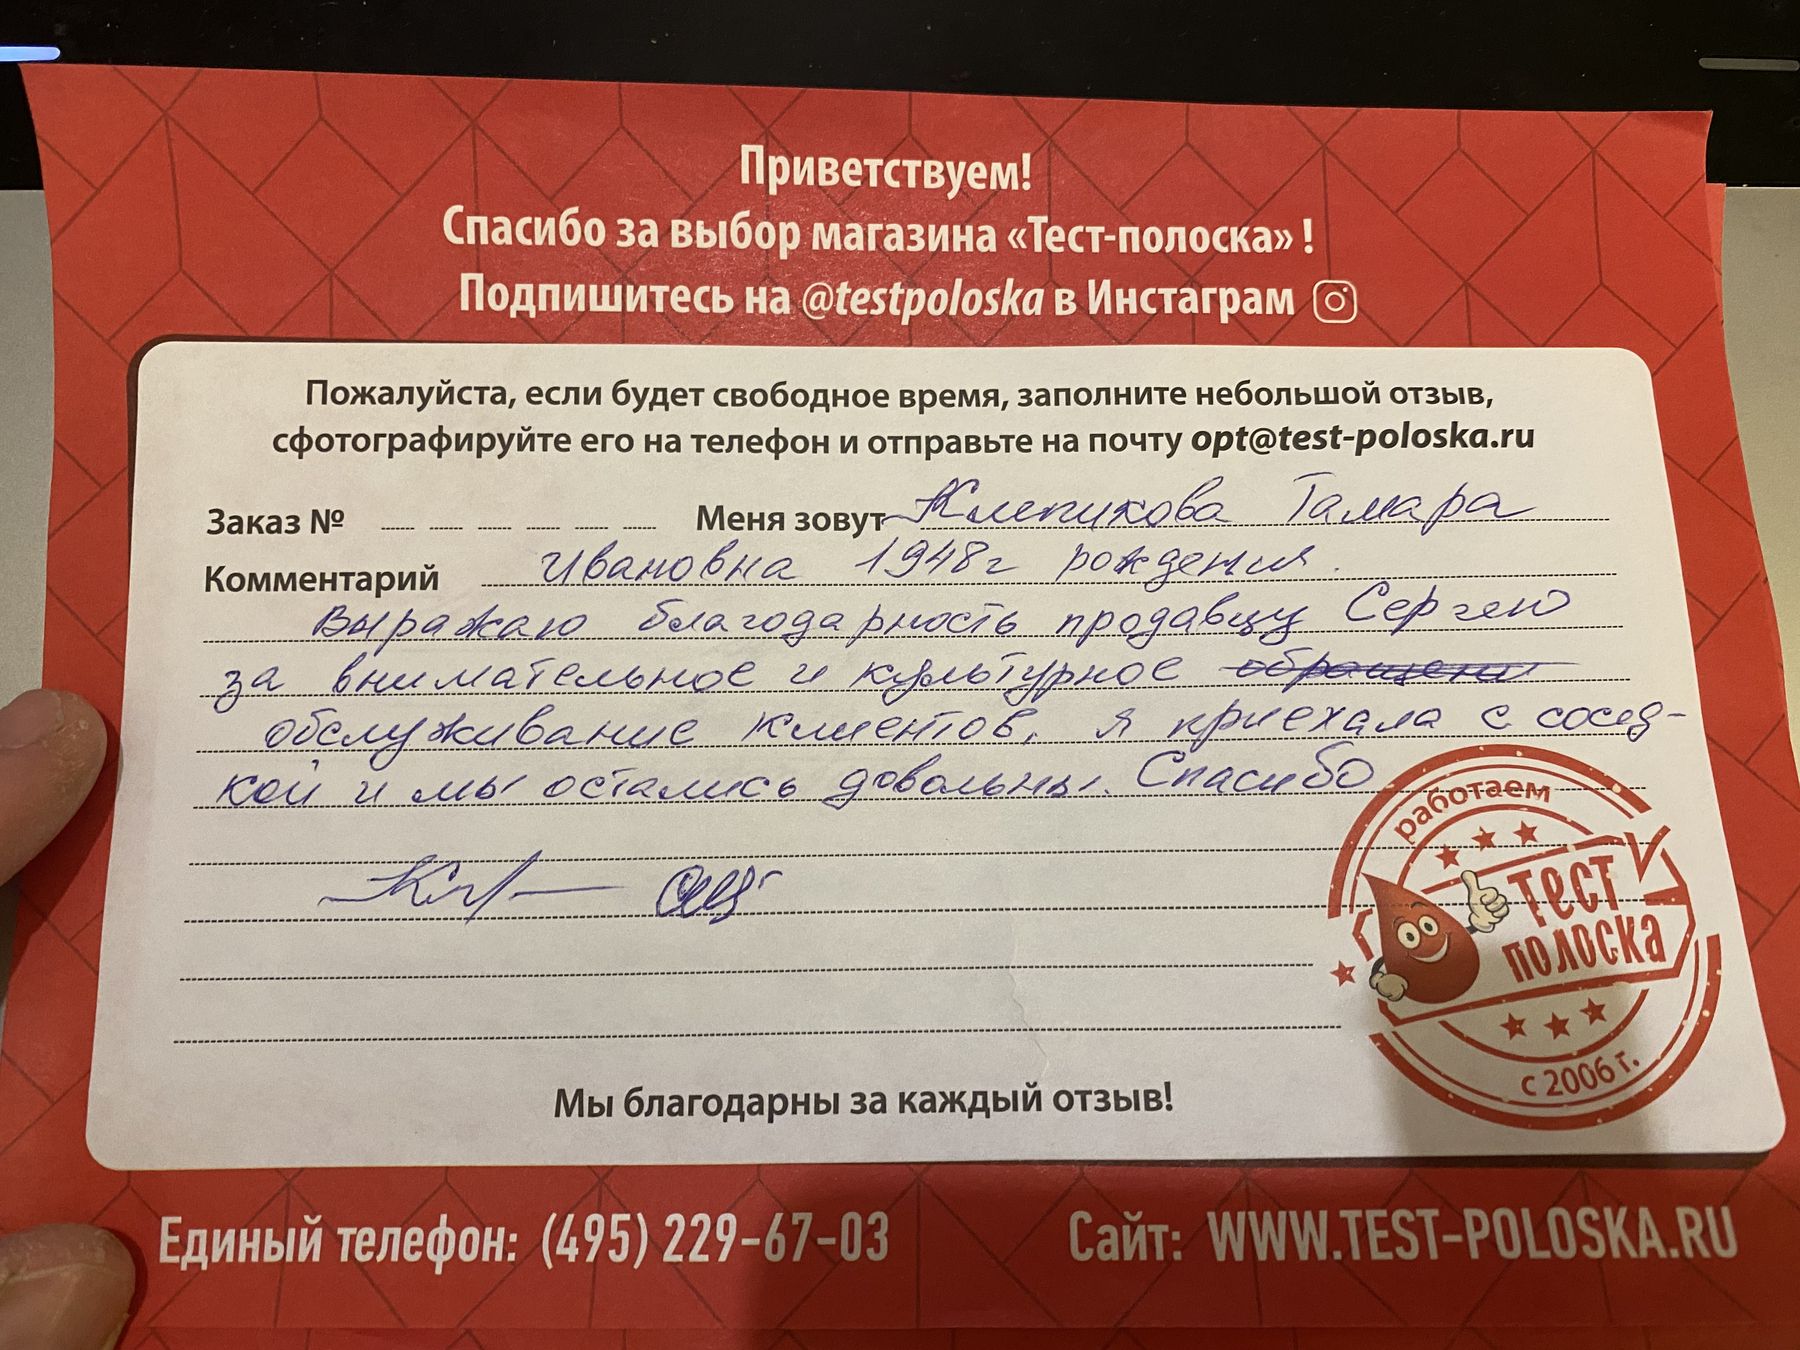 Приветствуем!
Спасибо за выбор магазина «Тест-полоска» !
Подпишитесь на @testpoloska в Инстаграм
Пожалуйста, если будет свободное время, заполните небольшой отзыв,
сфотографируйте его на телефон и отправьте на почту opt@test-poloska.ru
Заказ № Меня зовут Клепикова Тамара
Комментарий Ивановна 1948г рождения.
Выражаю благодарность продавцу Сергею
за внимательное и культурное
обслуживание клиентов, я приехала с сосед-
кой и мы остались довольны. Спасибо
работаем
ТЕСТ
ПОЛОСКА
с 2006 г.
Мы благодарны за каждый отзыв!
Единый телефон: (495) 229-67-03 Сайт: WWW.TEST-POLOSKA.RU